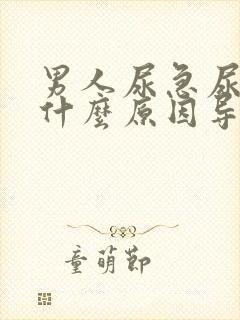 男人尿急尿
什麼原因导
童萌節